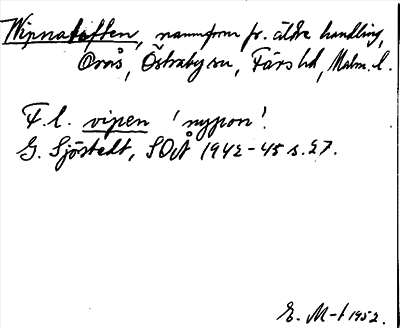 Wipnatoften, namnform fr. äldre handling,
Oraås, Östraby sn, Färs hd, Malm. l.
F. l. vipen 'nypon'.
G. Sjöstedt, SOÅ 1942-45 s. 27.
E. M-t 1952.